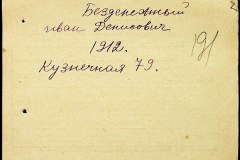 Безденежный
Иван Денисович
1912.
Кузнечная 79.
191